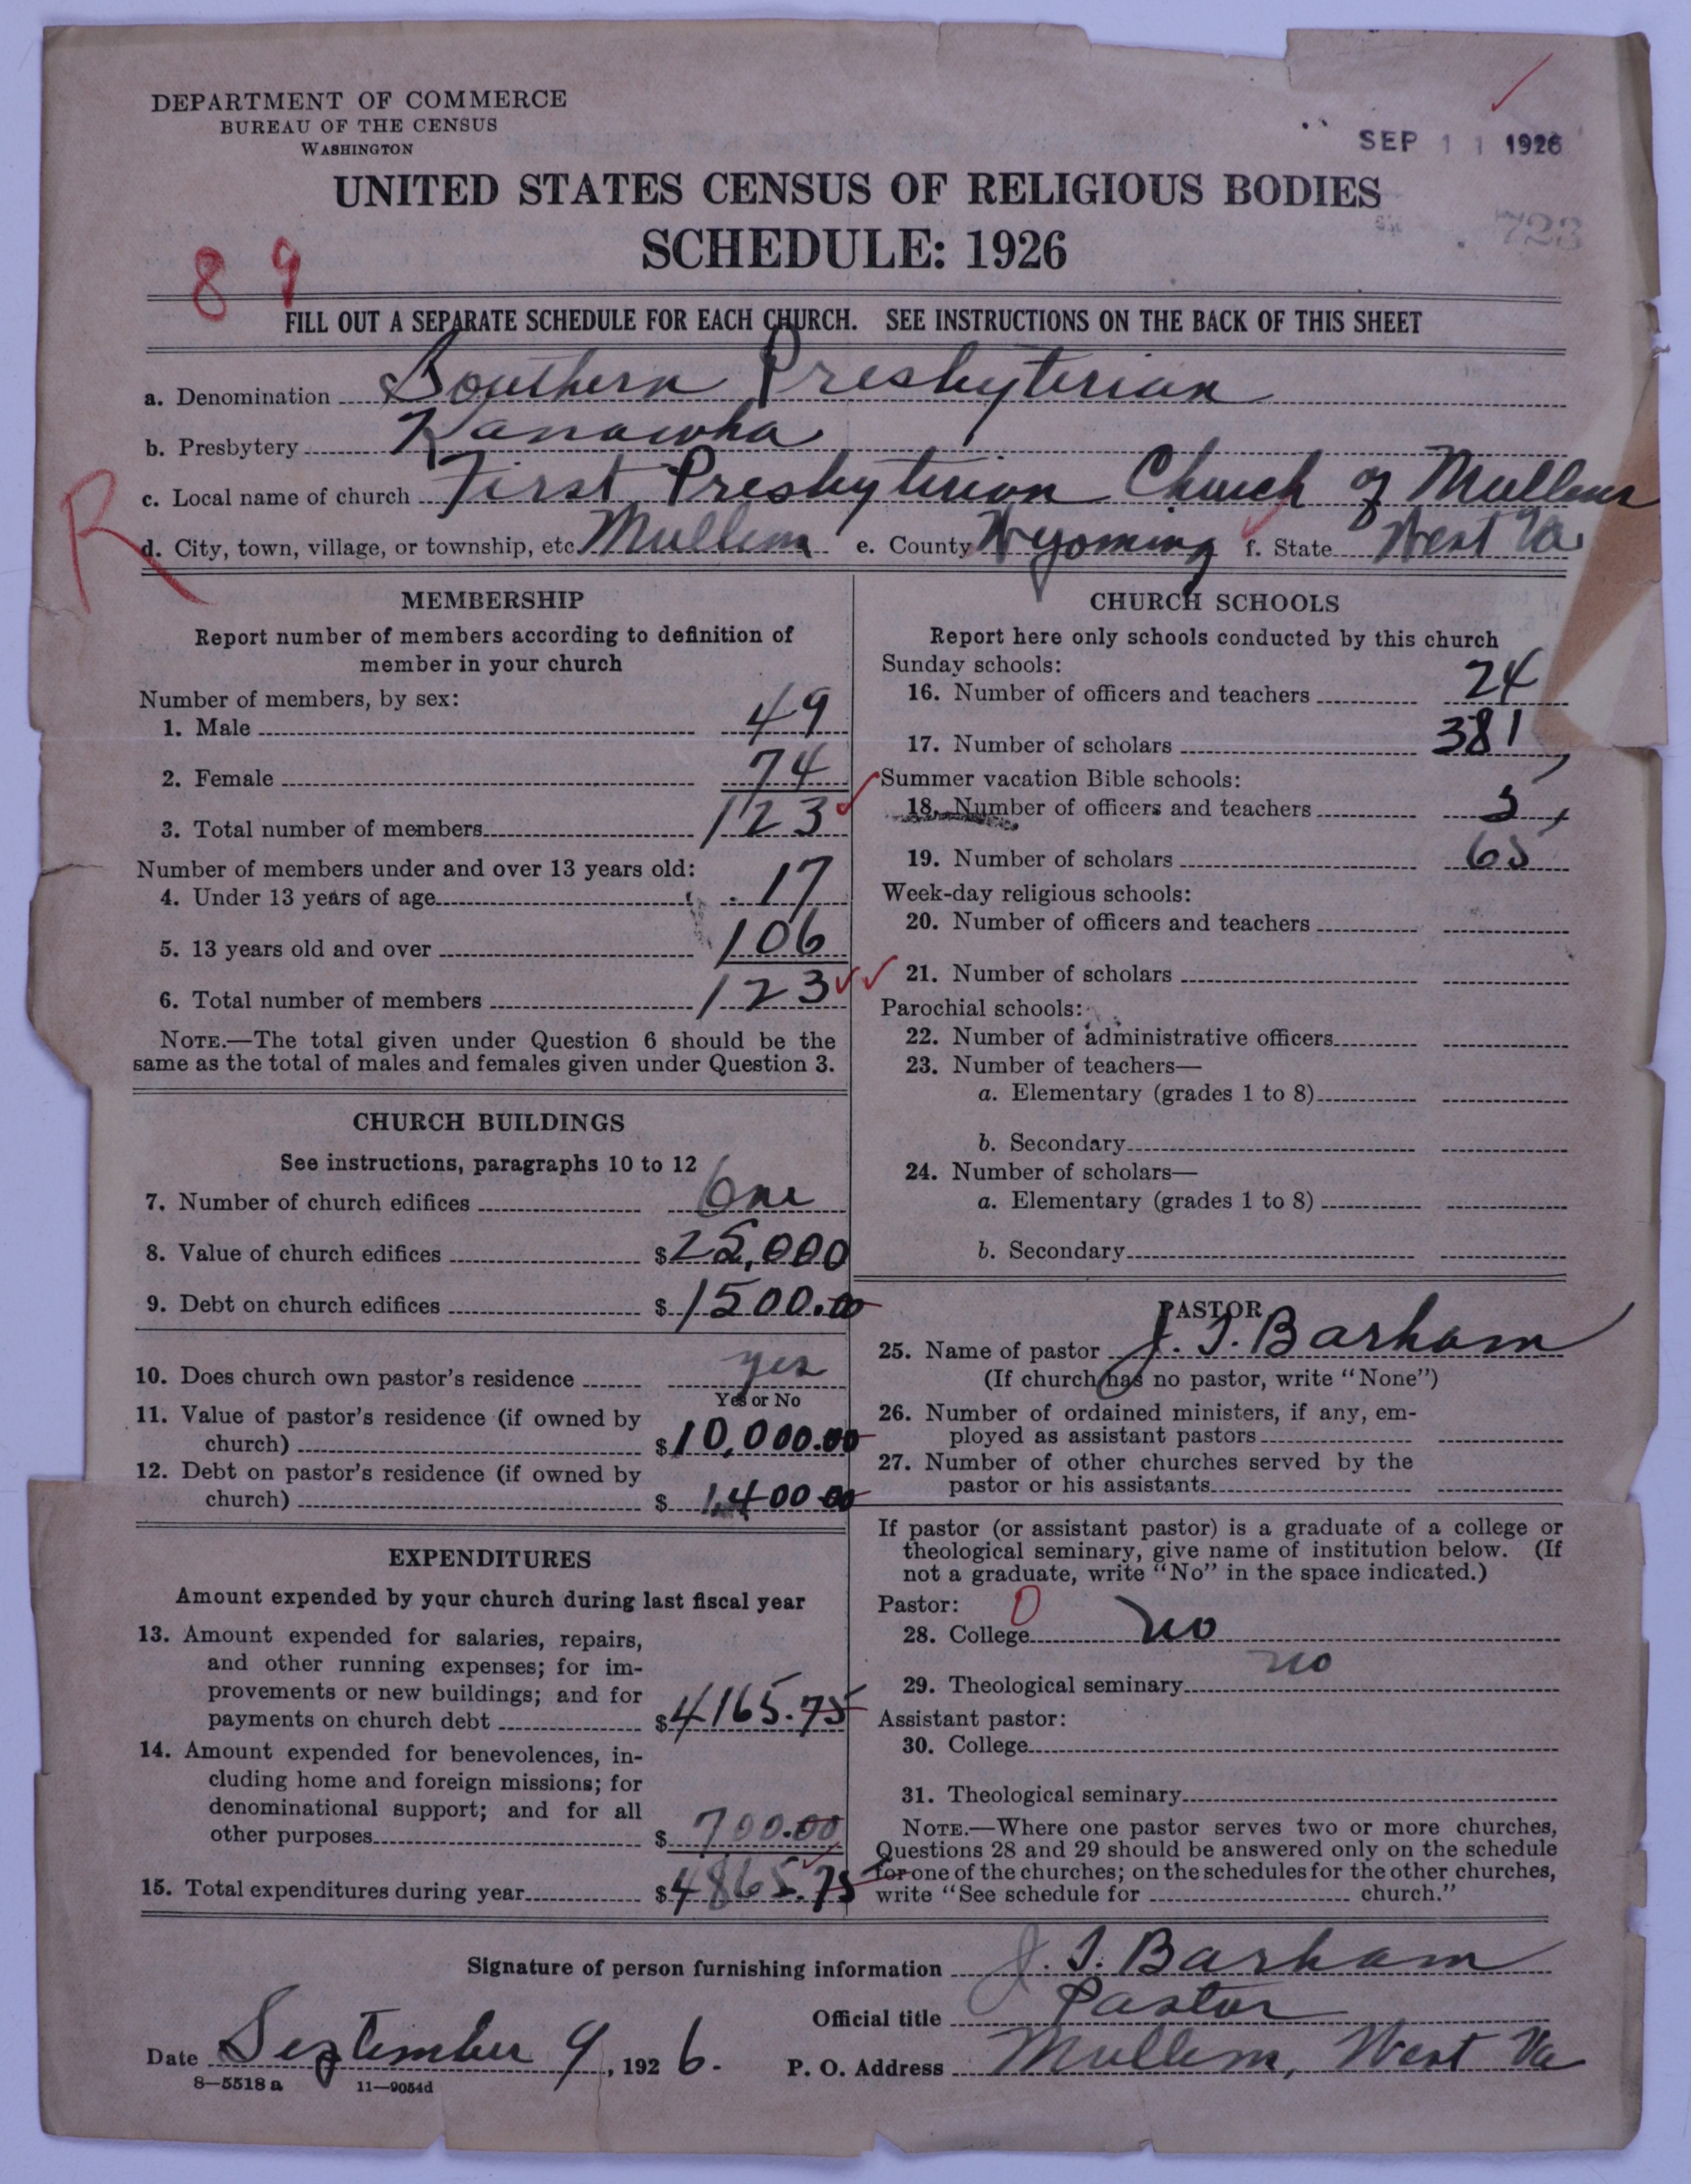 DEPARTMENT OF COMMERCE
BUREAU OF THE CENSUS
WASHINGTON
SEP 11 1926
UNITED STATES CENSUS OF RELIGIOUS BODIES
723
SCHEDULE: 1926
89
FILL OUT A SEPARATE SCHEDULE FOR EACH CHURCH. SEE INSTRUCTIONS ON THE BACK OF THIS SHEET
a. Denomination Southern Presbyterian
b. Presbytery Kanawha
c. Local name of church First Presbyterian Church of Mullens
R
d. City, town, village, or township, etc. Mullens e. County Wyoming f. State West Va.
MEMBERSHIP
Report number of members according to definition of
member in your church
Number of members, by sex:
1. Male 49
2. Female 74
3. Total number of members 123
Number of members under and over 13 years old:
4. Under 13 years of age 17
5. 13 years old and over 106
6. Total number of members 123
NOTE.—The total given under Question 6 should be the
same as the total of males and females given under Question 3.
CHURCH BUILDINGS
See instructions, paragraphs 10 to 12
7. Number of church edifices One
8. Value of church edifices $25,000
9. Debt on church edifices $1500.00
10. Does church own pastor's residence yes
Yes or No
11. Value of pastor's residence (if owned by
church) $10,000.00
12. Debt on pastor's residence (if owned by
church) $1,400 00
EXPENDITURES
Amount expended by your church during last fiscal year
13. Amount expended for salaries, repairs,
and other running expenses; for im-
provements or new buildings; and for
payments on church debt $4165.75
14. Amount expended for benevolences, in-
cluding home and foreign missions; for
denominational support; and for all
other purposes $700.00
15. Total expenditures during year $4865.75
CHURCH SCHOOLS
Report here only schools conducted by this church
Sunday schools:
16. Number of officers and teachers 24
17. Number of scholars 381
Summer vacation Bible schools:
18. Number of officers and teachers 5
19. Number of scholars 65
Week-day religious schools:
20. Number of officers and teachers
21. Number of scholars
Parochial schools:
22. Number of administrative officers
23. Number of teachers—
a. Elementary (grades 1 to 8)
b. Secondary
24. Number of scholars—
a. Elementary (grades 1 to 8)
b. Secondary
PASTOR
25. Name of pastor J. T. Barham
(If church has no pastor, write "None")
26. Number of ordained ministers, if any, em-
ployed as assistant pastors
27. Number of other churches served by the
pastor or his assistants
If pastor (or assistant pastor) is a graduate of a college or
theological seminary, give name of institution below. (If
not a graduate, write "No" in the space indicated.)
Pastor: 0
28. College no
29. Theological seminary no
Assistant pastor:
30. College
31. Theological seminary
NOTE.—Where one pastor serves two or more churches,
Questions 28 and 29 should be answered only on the schedule
for one of the churches; on the schedules for the other churches,
write "See schedule for church."
Signature of person furnishing information J. T. Barham
Official title Pastor
Date September 9, 1926. P. O. Address Mullens, West Va
8—5518 a 11—9054d